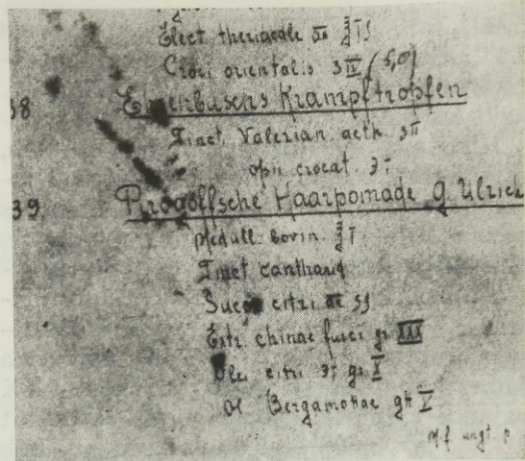 Elect theriacale aa ℥ iſ
Croci orientalis ʒ IV (5,0)
38 Krampftropfen
Tinct. Valerian. aeth. ʒ ii
opii crocat. ʒ i
39. Haarpomade g. Ulrich
Medull. bovin. ℥ i
Tinct cantharid
Succ citri aa ʒſ
Extr. chinae fusci gr XXX
Olei citri gr X
Ol Bergamottae gtt V
M.f ungt. p